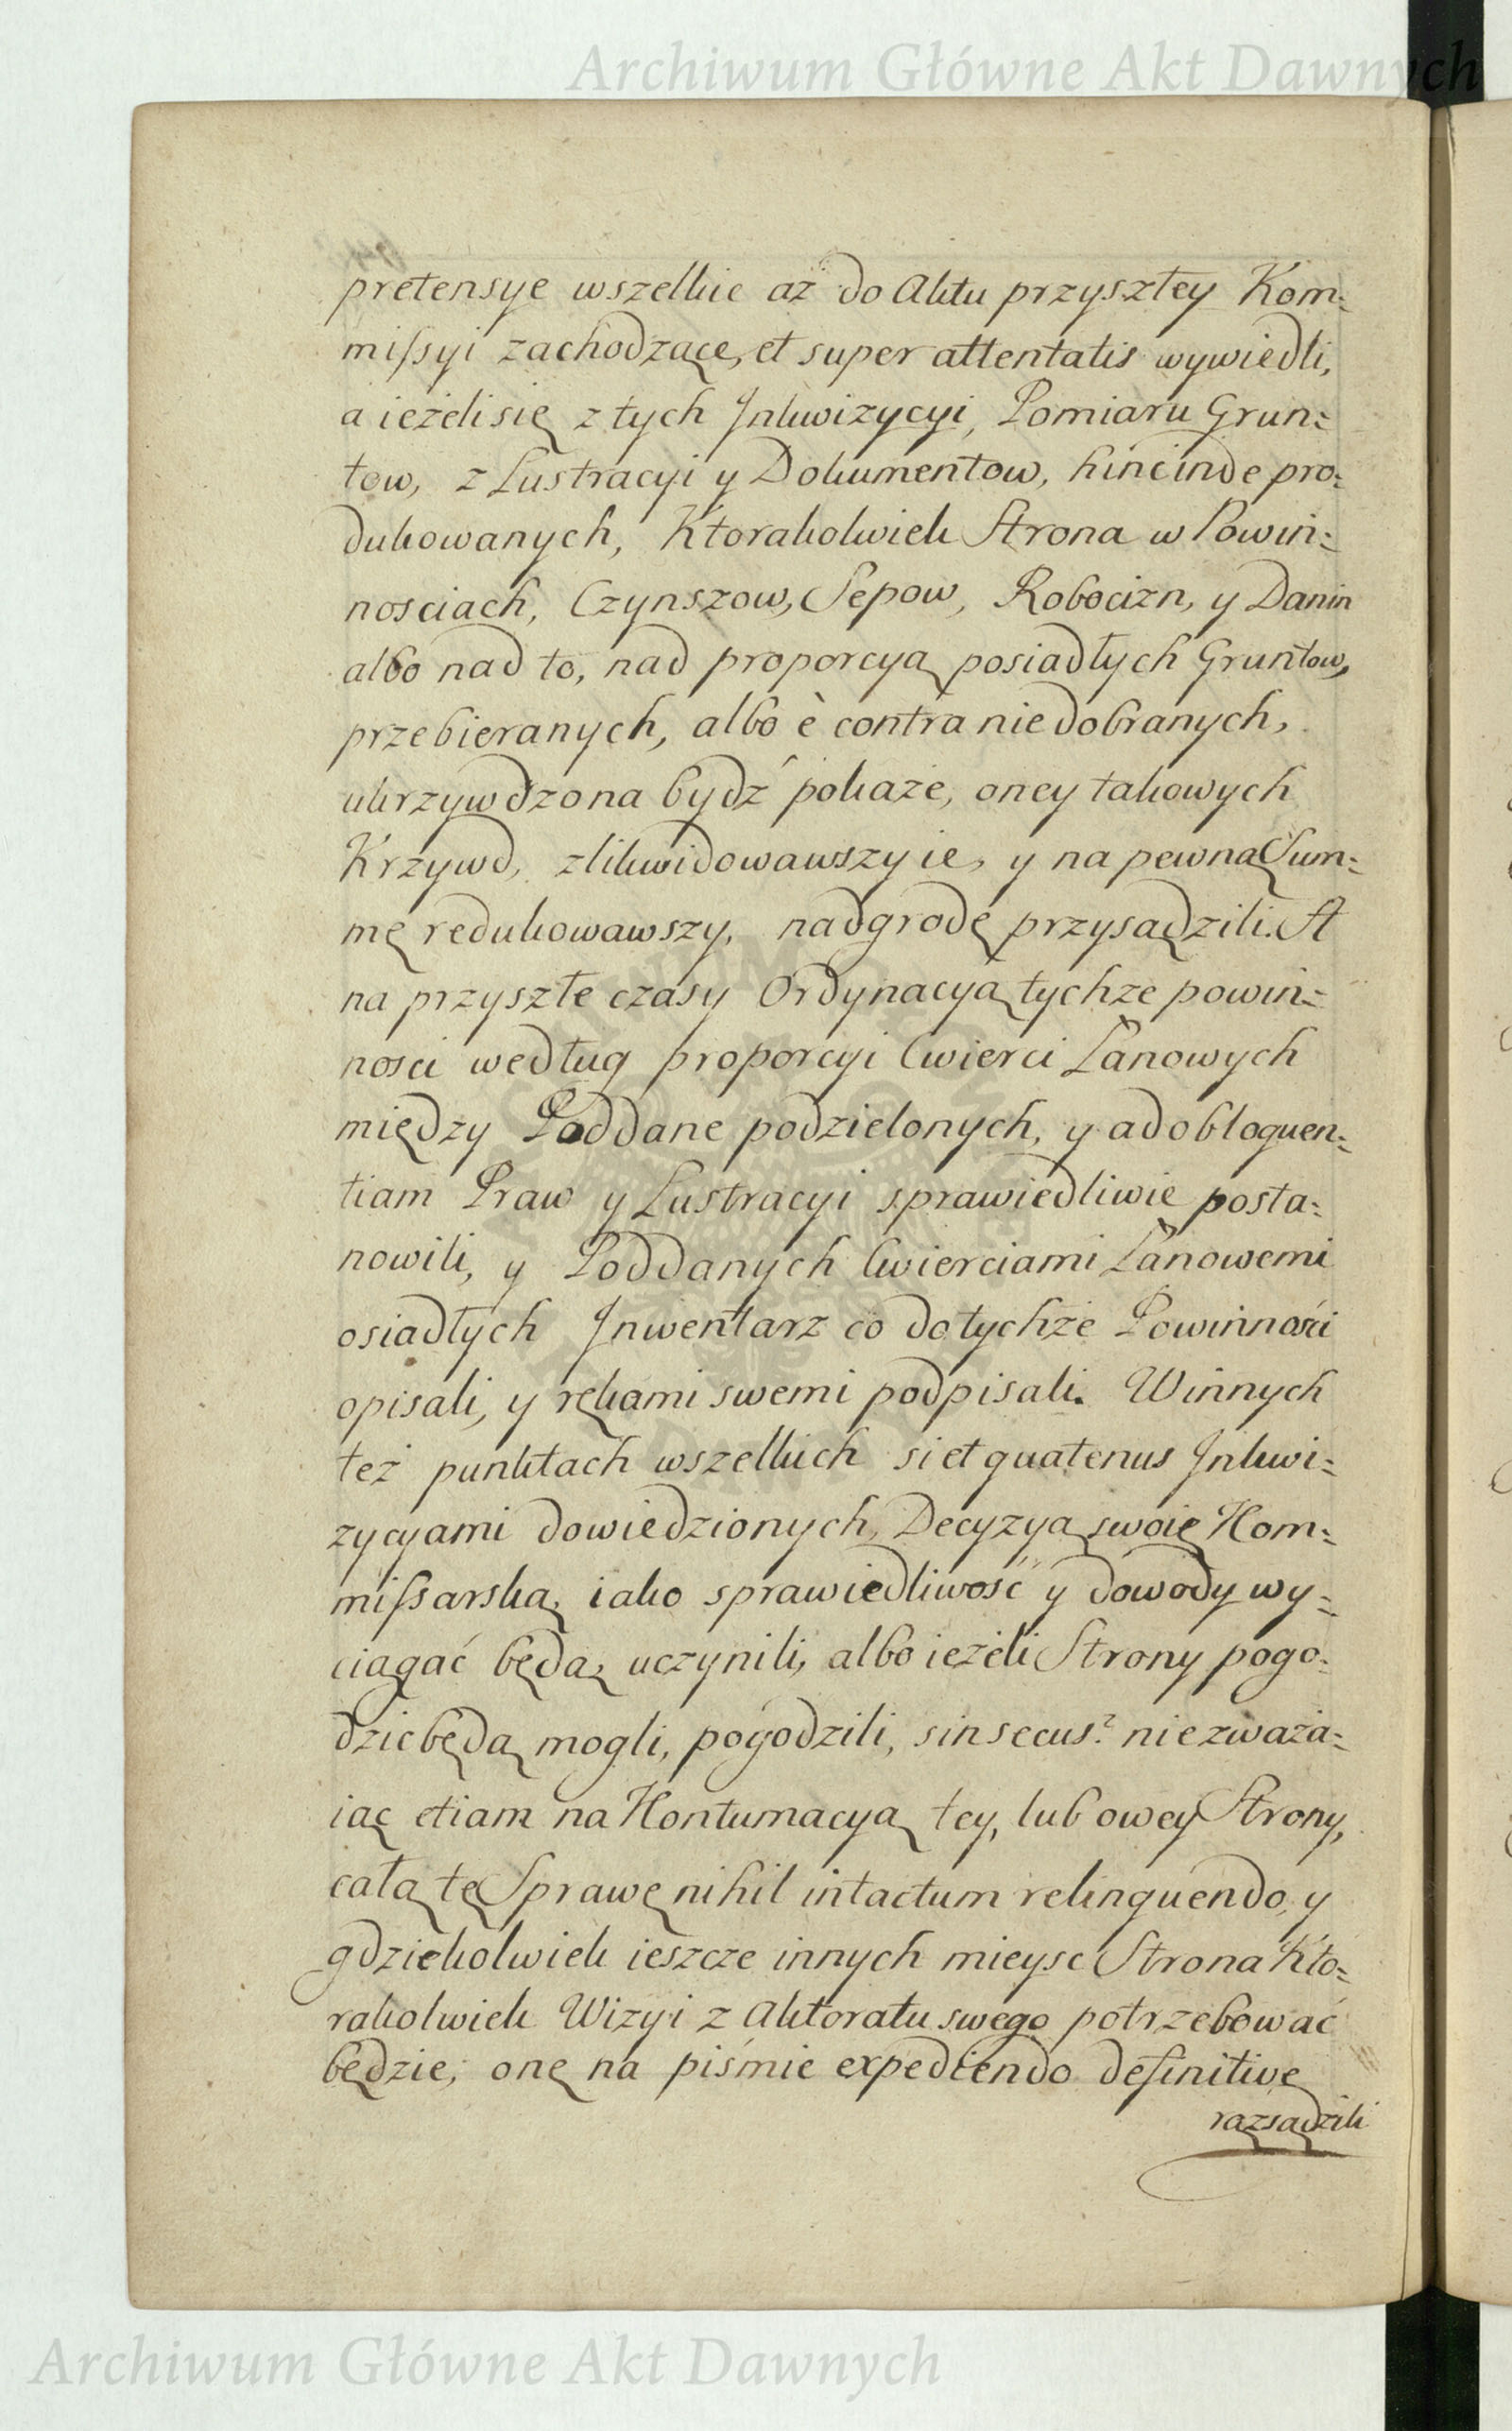 Archiwum Główne Akt Dawnych
pretensye wszelkie aż do Aktu przyszłey Kom=
missyi zachodzące, et super attentatis wywiedli,
a ieżeli się z tych Inkwizycyi, Pomiaru Grun=
tow, z Lustracyi y Dokumentow, hincinde pro=
dukowanych, Ktorakolwiek Strona w Powin=
nosciach, Czynszow, Sepow, Robocizn, y Danin
albo nad to, nad proporcyą posiadłych Gruntow,
przebieranych, albo è contra niedobranych,
ukrzywdzona bydź pokaże, oney takowych
Krzywd, zlikwidowawszy ie, y na pewną Sum=
mę redukowawszy, nadgrodę przysądzili. A
na przyszłe czasy Ordynacyą tychże powin=
nosci według proporcyi Cwierci Łanowych
między Poddane podzielonych, y ad obloquen=
tiam Praw y Lustracyi sprawiedliwie posta=
nowili, y Poddanych Cwierciami Łanowemi
osiadłych Inwentarz co do tychże Powinności
opisali, y rękami swemi podpisali. W innych
też punktach wszelkich si et quatenus Inkwi=
zycyami dowiedzionych, Decyzyą swoię Kom=
missarską, iako sprawiedliwość y dowody wy=
ciągać będą, uczynili, albo ieżeli Strony pogo=
dzic będą mogli, pogodzili, sin secus? niezważa=
iąc etiam na Kontumacyą tey, lub owey Strony,
całą tę Sprawę nihil intactum relinquendo, y
gdziekolwiek ieszcze innych mieysc Strona Kto=
rakolwiek Wizyi z Aktoratu swego potrzebować
będzie, onę na piśmie expediendo definitive
razsądzili
Archiwum Główne Akt Dawnych